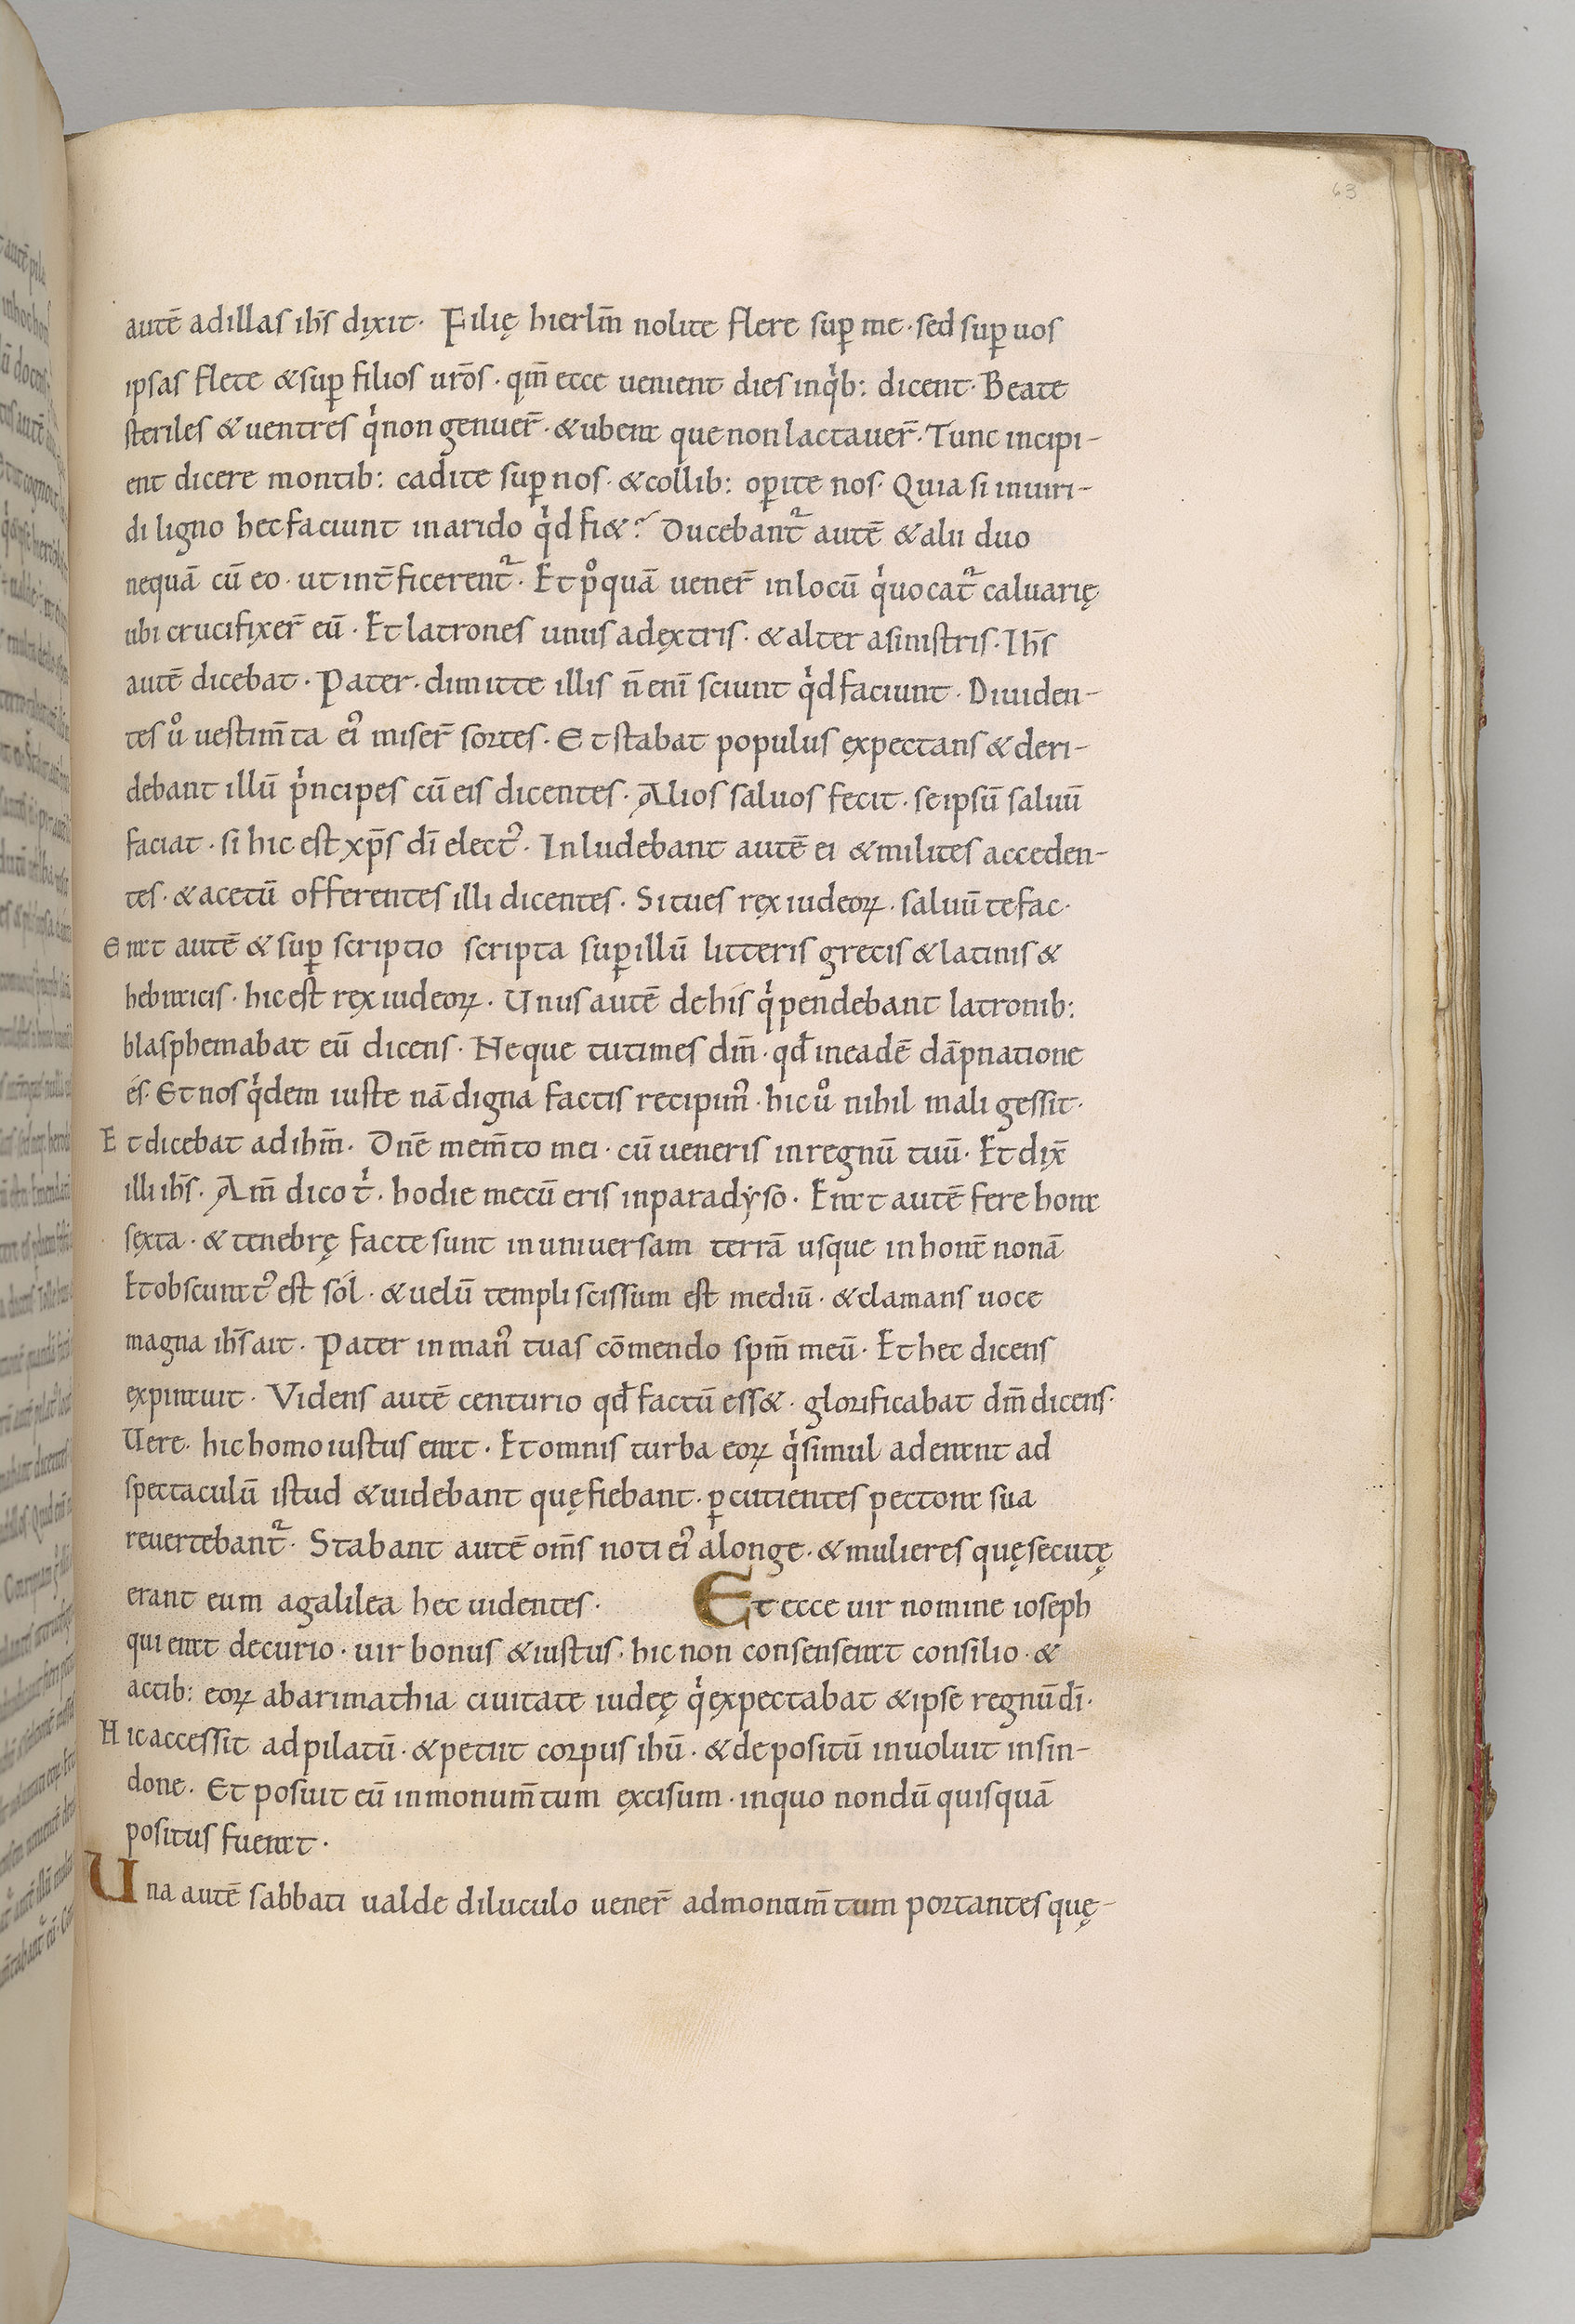 63
autē adillas ih̄s dixit · Filię hierlm̄ nolite flere sup̱ me · sed sup̱ uos
ipsas flete & sup̱ filios ur̄os · qm̄ ecce uenient dies inqͥb: dicent · Beate
steriles & uentres qͥ non genuer̄ · & ubera que non lactauer̄ · Tunc incipi-
ent dicere montib: cadite sup̱ nos · & collib: op̱ite nos · Quia si inuiri-
di ligno hec faciunt inarido qͥd fi&? Ducebant᷑ autē & alii duo
nequā cū eo · ut int̄ficerent᷑ · Et p̊quā uener̄ inlocū qͥ uocat᷑ caluarię
ubi crucifixer̄ eū · Et latrones unus adextris · & alter asinistris · Ih̄s
autē dicebat · Pater · dimitte illis n̄ enī sciunt qͥd faciunt · Diuiden-
tes uͦ uestim̄ta eiꝰ miser̄ sortes · Et stabat populus expectans & deri-
debant illū pͥncipes cū eis dicentes · Alios saluos fecit · se ipsū saluū
faciat · si hic est xp̄s dī electꝰ · Inludebant autē ei & milites acceden-
tes · & acetū offerentes illi dicentes · Si tu es rex iudeoꝝ · saluū te fac ·
Erat autē & sup̱ scriptio scripta sup̱ illū litteris grecis & latinis &
hebraicis · hic est rex iudeoꝝ · Unus autē de his qͥ pendebant latronib:
blasphemabat eū dicens · Neque tu times dm̄ · qđ in eadē dāpnatione
és · Et nos qͥdem iuste nā digna factis recipimꝰ · hic uͦ nihil mali gessit ·
Et dicebat ad ihm̄ · Dn̄e mem̄to mei · cū ueneris inregnū tuū · Et dix̄
illi ih̄s · Am̄ dico tͥ · hodie mecū eris inparadẏso · Erat autē fere hora
sexta · & tenebrę facte sunt inuniuersam terrā usque inhorā nonā
Et obscuratꝰ est sól · & uelū templi scissum est mediū · & clamans uoce
magna ih̄s ait · Pater inmanꝰ tuas cōmendo spm̄ meū · Et hec dicens
expirauit · Videns autē centurio qđ factū ess& · glorificabat dm̄ dicens ·
Uere · hic homo iustus erat · Et omnis turba eoꝝ qͥ simul aderant ad
spectaculū istud & uidebant quę fiebant · p̱cutientes pectora sua
reuertebant᷑ · Stabant autē om̄s noti eiꝰ alonge · & mulieres quę secutę
erant eum agalilea hec uidentes · Et ecce uir nomine ioseph
qui erat decurio · uir bonus & iustus · hic non consenserat consilio · &
actib: eoꝝ abarimathia ciuitate iudeę qͥ expectabat & ipse regnū dī ·
Hic accessit adpilatū · & petiit corpus ihū · & depositū inuoluit insin-
done · Et posuit eū inmonum̄tum excisum · inquo nondū quisquā
positus fuerat ·
Una autē sabbati ualde diluculo uener̄ admonum̄tum portantes quę-